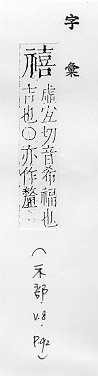 字彙
禧
虛宜切音希福也
吉也○亦作釐…
(示部.V.8.P92)